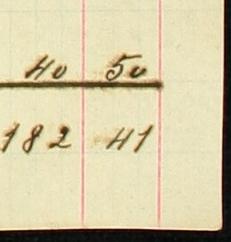 40 50
182 41